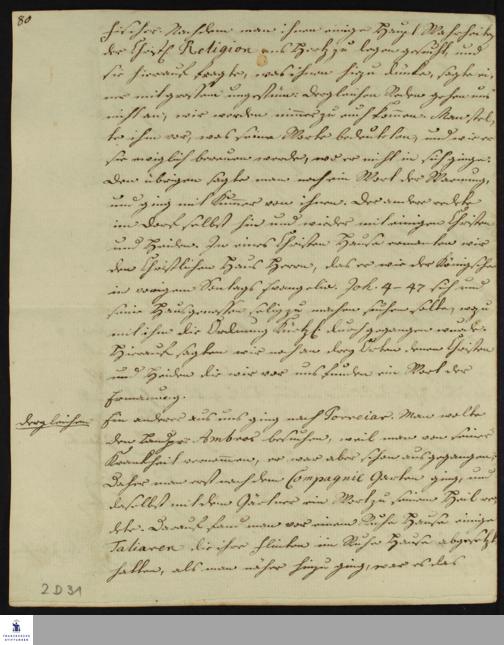 80
Fischer. Nachdem man ihnen einige Haupt Wahrheiten
der Christl. Religion ans Hertz zu legen gesucht, und
sie hierauf fragte, was ihnen hiezu dünke, sagte ei-
ner mit grossem ungestüm: dergleichen Reden gehen uns
nicht an, wir werden nimmer zu euch kommen. Man stel-
te ihm vor, was seine Worte bedeuteten, und wie er
sie ewiglich bereuen werde, wo er nicht in sich ginge.
Den übrigen sagte man noch ein Wort der Warnung,
und ging mit Kummer von ihnen. Der andere redete
im Dorfe selbst hin und wieder mit einigen Christen
und Heiden. In eines Christen Hause ermanten wir
den Christlichen Haus Herrn, das er wie der Königsche
in vorigem Sontags Evangelio. Joh. 4-47 sich und
seine Hausgenossen selig zu machen suchen solte, wozu
mit ihm die Ordnung kürtzl. durchgegangen wurde.
Hierauf sagten wir noch an drey Orten denen Christen
und Heiden die wir vor uns funden ein Wort der
Ermanung.
dergleichen
Ein anderer aus uns ging nach Porreiar. Man wolte
den Landpr. Ambros besuchen, weil man von seiner
Krankheit vernommen, er war aber schon ausgegangen.
Daher man erst nach dem Compagnie Garten ging, und
daselbst mit dem Gärtner ein Wort zu seinem Heil re-
dete. Darauf fand man vor einem Ruhe Hause einige
Taliaren die ihre Flinten im Ruhe Hause abgesetzt
hatten, als man näher hinzu ging, war es das
2 D 31
FRANCKESCHE STIFTUNGEN